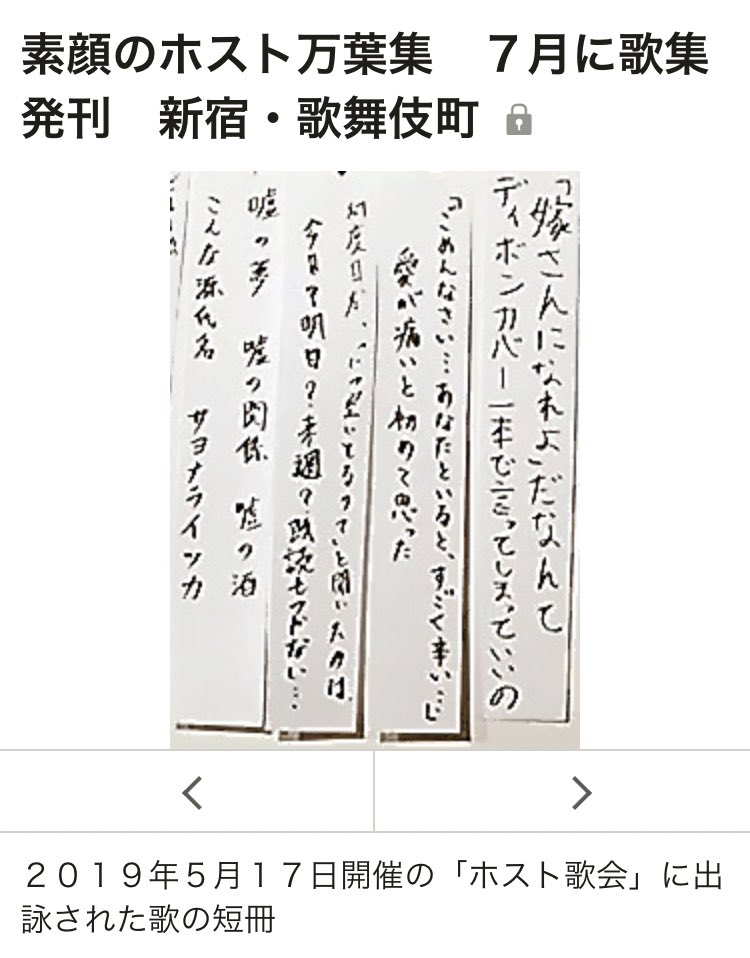 素顔のホスト万葉集　７月に歌集
発刊　新宿・歌舞伎町
「嫁さんになれよ」だなんて
ディボンカバー一本で言ってしまっていいの
「ごめんなさい…あなたといると、すごく辛い…」
愛が痛いと初めて思った
何度目だ、と聞いたのは、
今日？明日？来週？既読も
嘘の夢　嘘の関係　嘘の酒
こんな源氏名　サヨナライツカ
２０１９年５月１７日開催の「ホスト歌会」に出
詠された歌の短冊